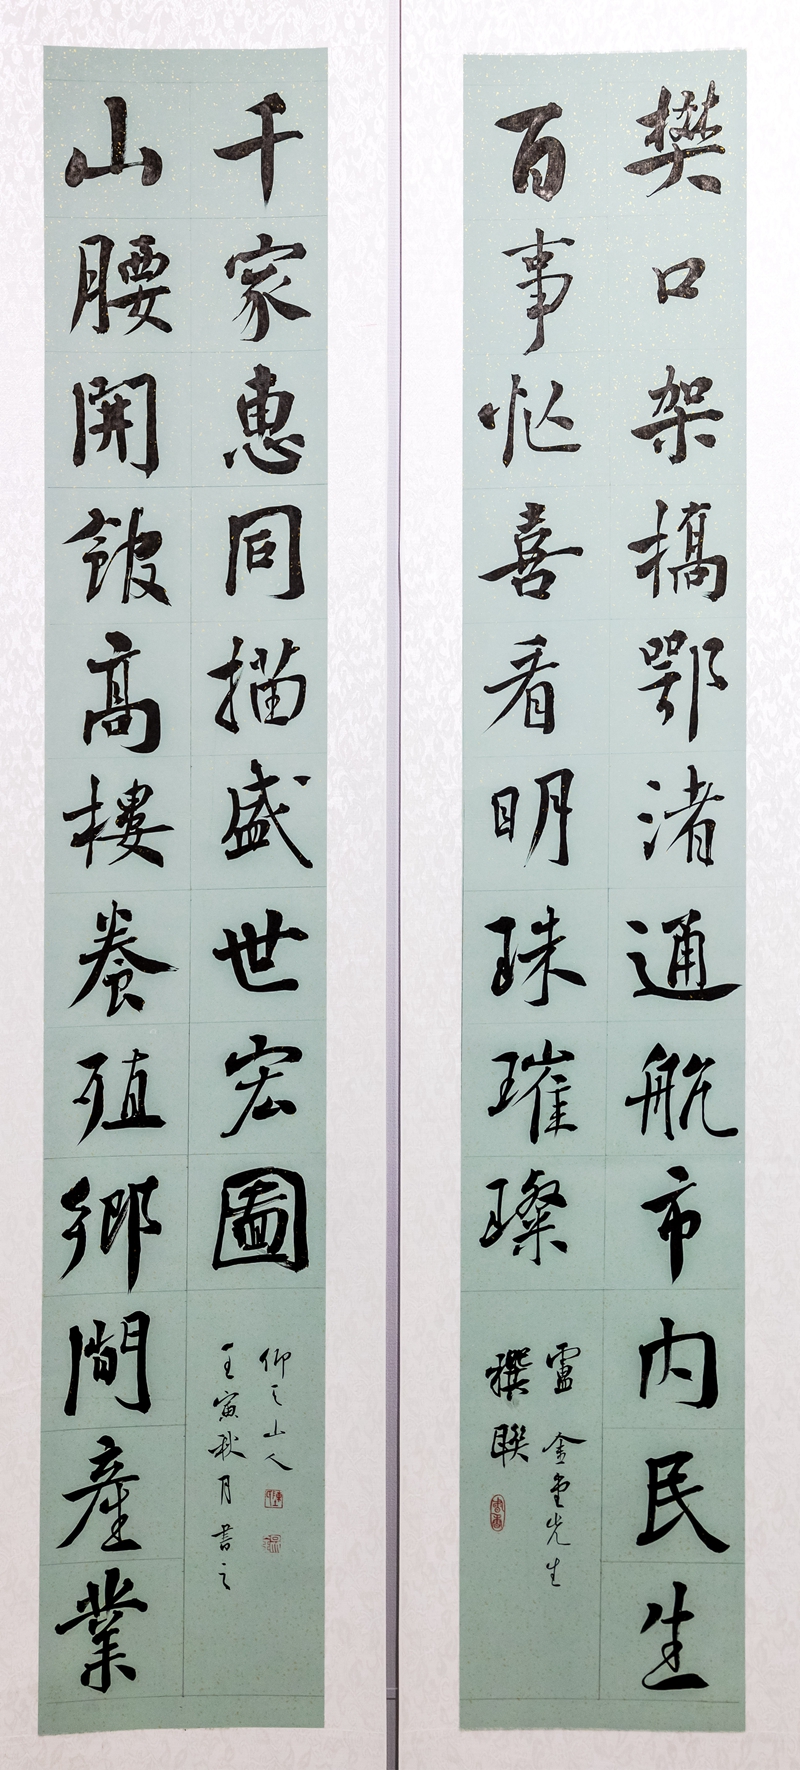 樊口架橋鄂渚通航市內民生
百事忙喜看明珠璀璨
盧金先生
撰聯
山腰開館高樓養殖鄉間產業
千家惠同描盛世宏圖
壬寅秋月書之
仰之山人